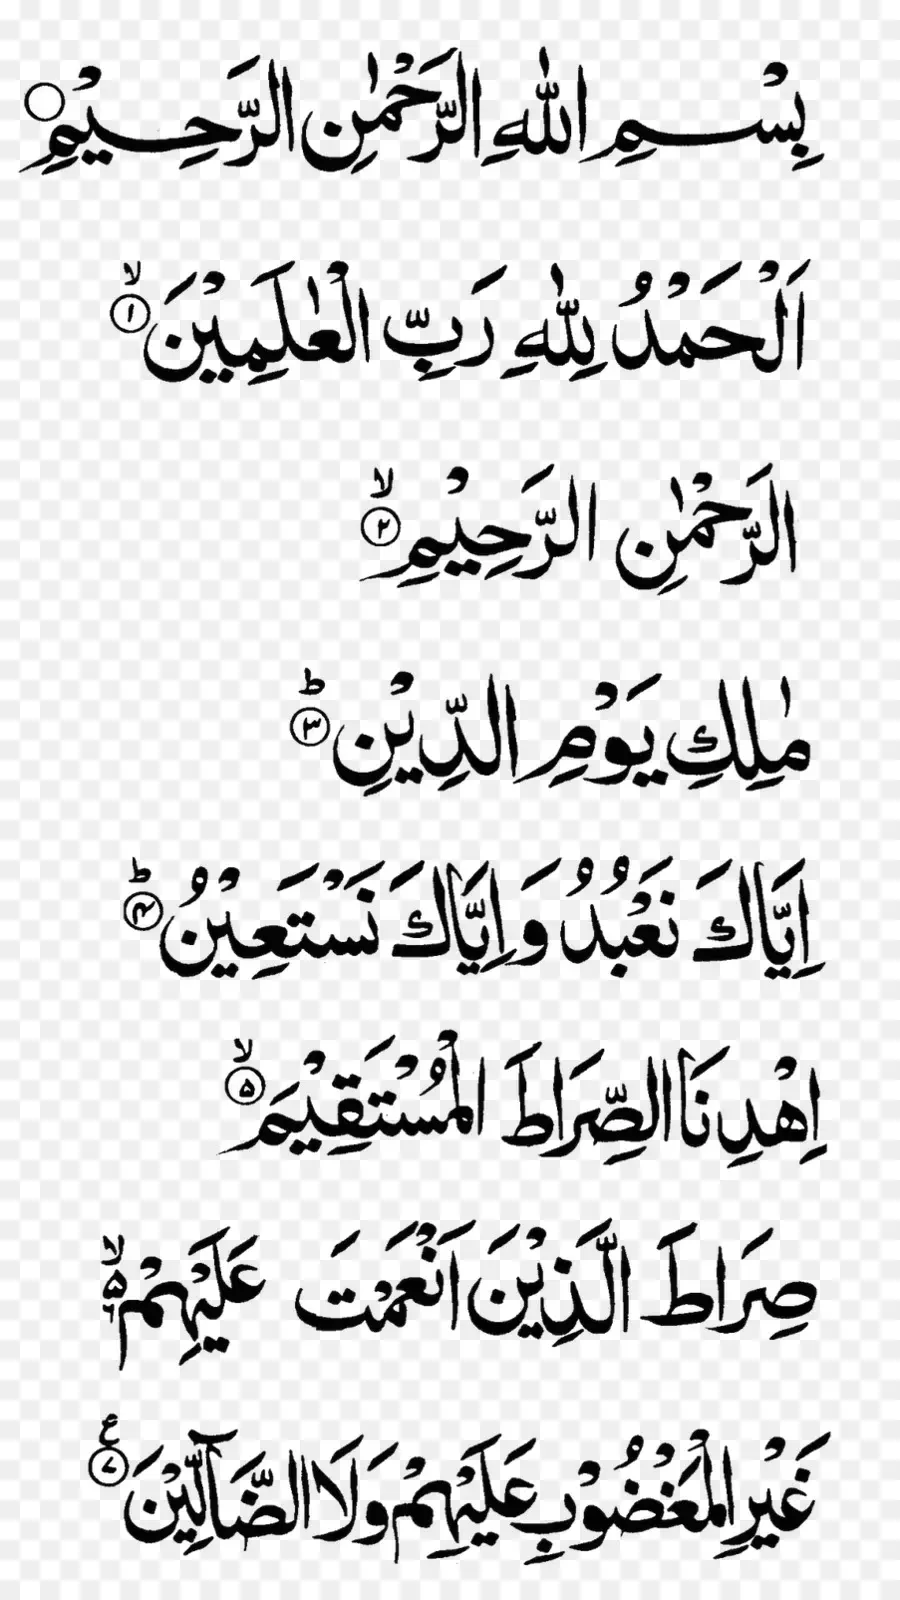 بِسْمِ اللّٰهِ الرَّحْمٰنِ الرَّحِيْمِ ۝
اَلْحَمْدُ لِلّٰهِ رَبِّ الْعٰلَمِيْنَ ۙ‏﴿۱﴾
الرَّحْمٰنِ الرَّحِيْمِ ۙ‏﴿۲﴾
مٰلِكِ يَوْمِ الدِّيْنِ ؕ‏﴿۳﴾
اِيَّاكَ نَعْبُدُ وَ اِيَّاكَ نَسْتَعِيْنُ ؕ‏﴿۴﴾
اِهْدِنَا الصِّرَاطَ الْمُسْتَقِيْمَ ۙ‏﴿۵﴾
صِرَاطَ الَّذِيْنَ اَنْعَمْتَ عَلَيْهِمْ ۙ۵ ۶
غَيْرِ الْمَغْضُوْبِ عَلَيْهِمْ وَلَا الضَّآلِّيْنَ ع ﴿۷﴾